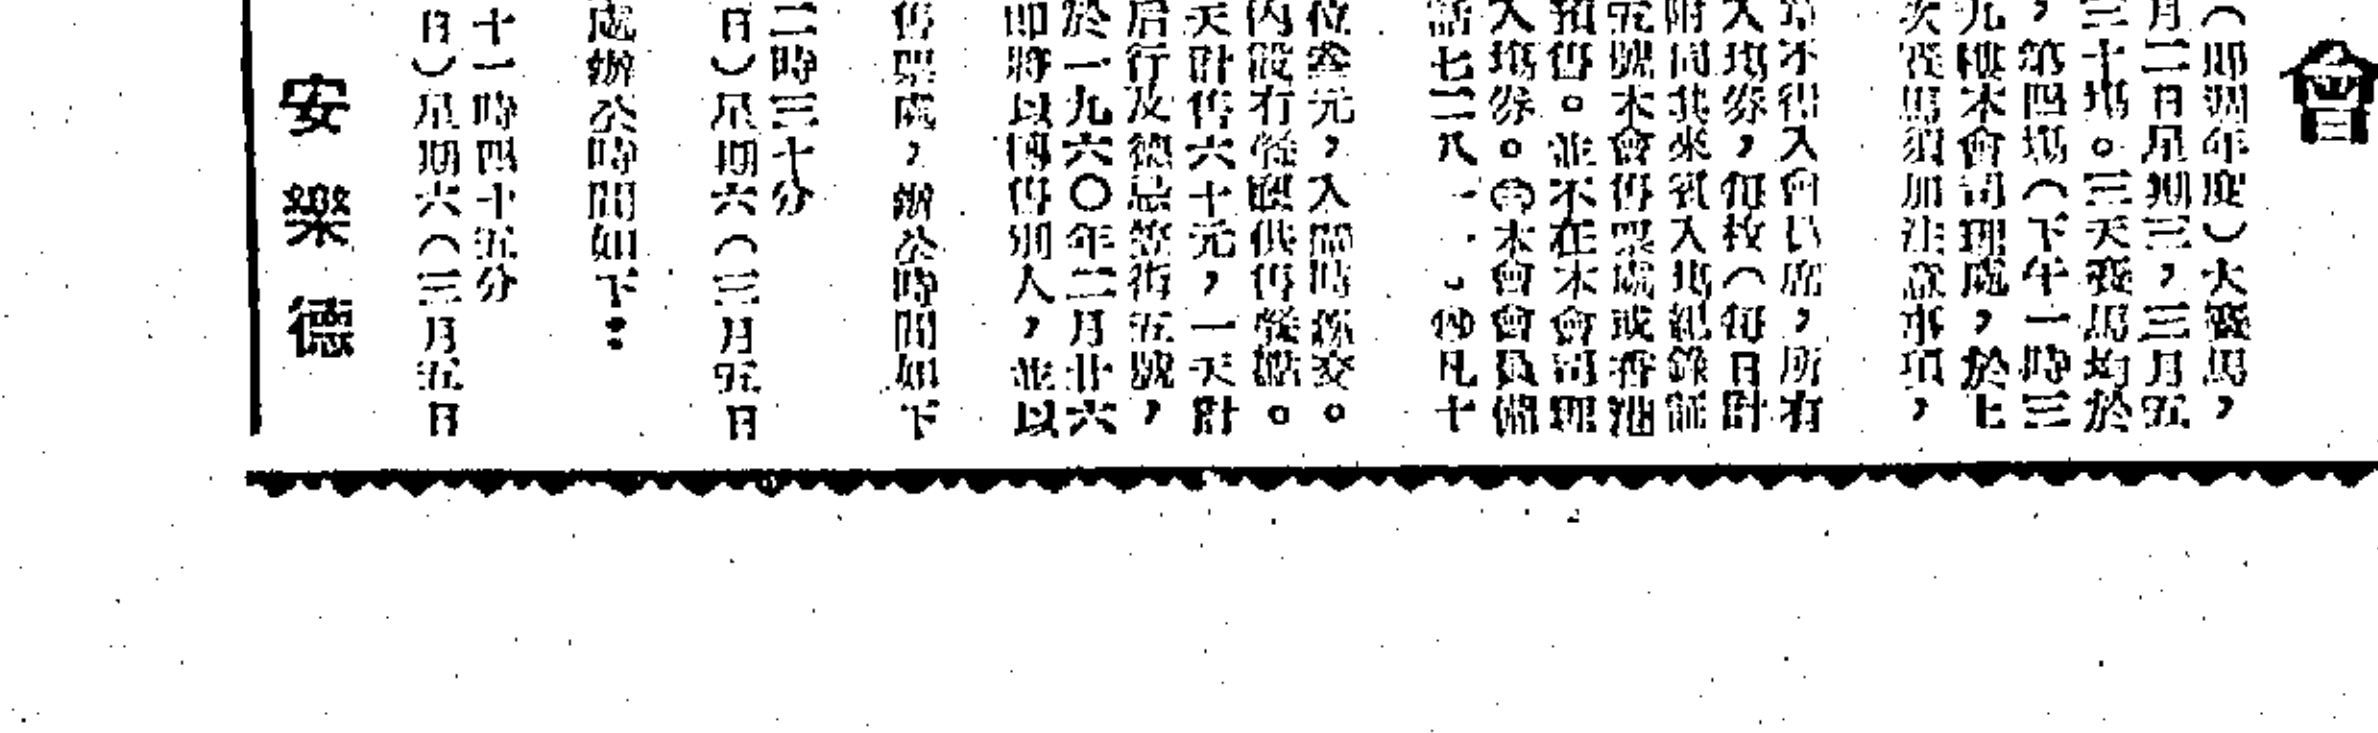 會
（即週年度）大賽馬，
月二日星期三，三月五
三十場。三天賽馬均於
，第四場（下午一時三
九樓本會司理處，於上
次賽馬須加注意事項，
章不得入會員席，所有
入場券，每枚（每日計
附同其來賓入場紀錄証
五號本會售票處或香港
預售。並不在本會司理
入場券。本會會員備
話七二八一一。㈣凡十
位叁元，入閘時係交。
內設有餐廳供售餐點。
天計售六十元，一天計
后行及德忌笠街五號，
於一九六〇年二月廿六
即將以轉售別人，並以
售票處，辦公時間如下
二時三十分
日）星期六（三月五日
處辦公時間如下：
十一時四十五分
日）星期六（三月五日
安樂德